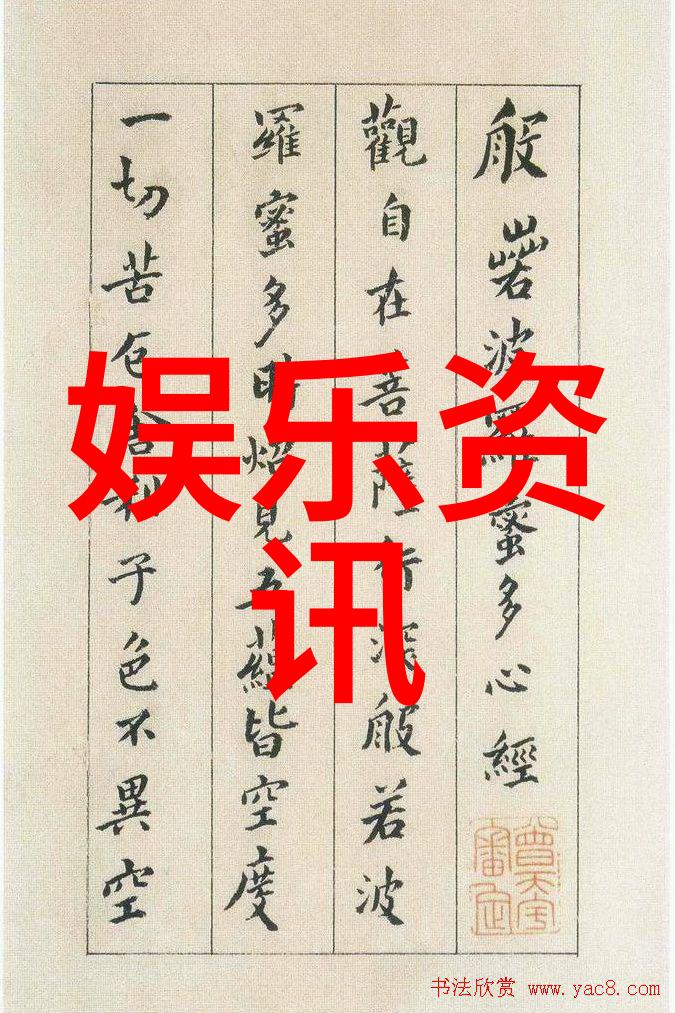 般若波羅蜜多心經
觀自在菩薩行深般若波
羅蜜多時炤見五蘊皆空度
一切苦厄舍利子色不異空
娱乐资
讯
书法欣赏 www.yac8.com